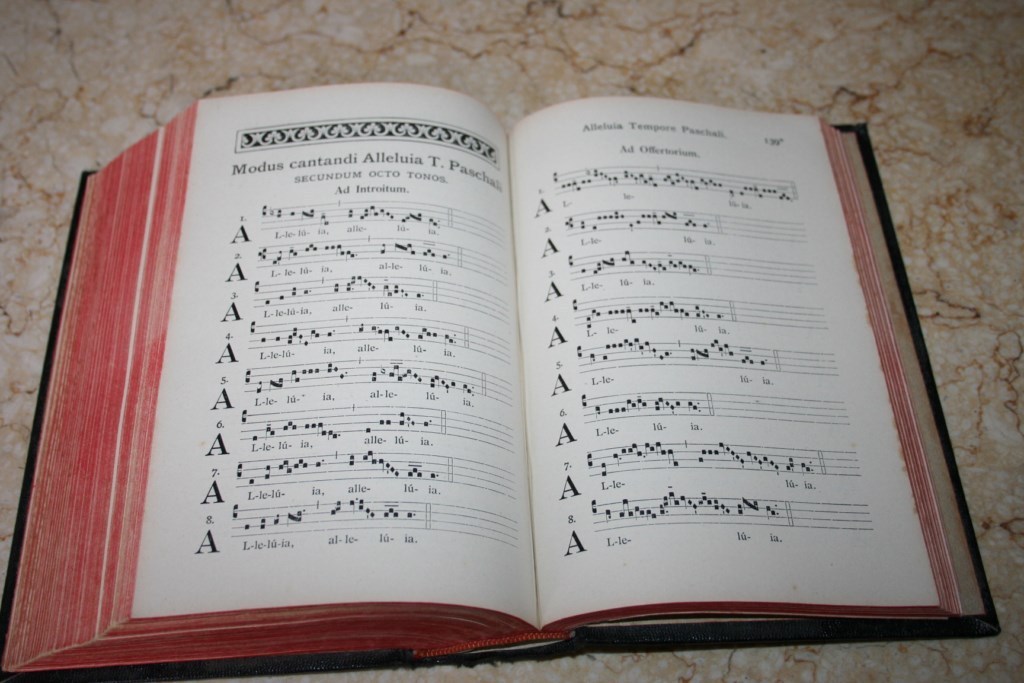 Modus cantandi Alleluia T. Paschali
SECUNDUM OCTO TONOS.
Ad Introitum.
1.
A L-le-lú- ia, alle- lú- ia.
2.
A L-le-lú- ia, al-le- lú- ia.
3.
A L-le-lú-ia, alle- lú- ia.
4.
A L-le-lú- ia, alle- lú- ia.
5.
A L-le- lú- ia, al-le- lú- ia.
6.
A L-le-lú- ia, alle- lú- ia.
7.
A L-le-lú- ia, alle- lú- ia.
8.
A L-le-lú-ia, al-le- lú- ia.
Alleluia Tempore Paschali. 139*
Ad Offertorium.
1.
A L- le- lú-ia.
2.
A L-le- lú- ia.
3.
A L-le- lú- ia.
4.
A L- le- lú- ia.
5.
A L-le- lú- ia.
6.
A L-le- lú- ia.
7.
A L-le- lú- ia.
8.
A L-le- lú- ia.